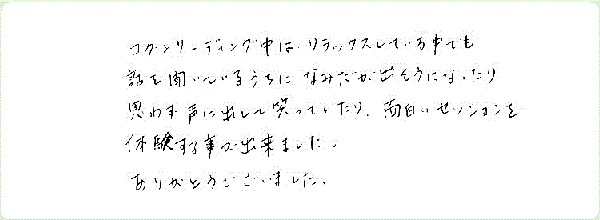 コタンリーディング中は、リラックスしている中でも
話を聞いているうちに なみだが出そうになったり
思わず声に出して笑っていたり、面白いセッションを
体験する事が出来ました。
ありがとうございました。